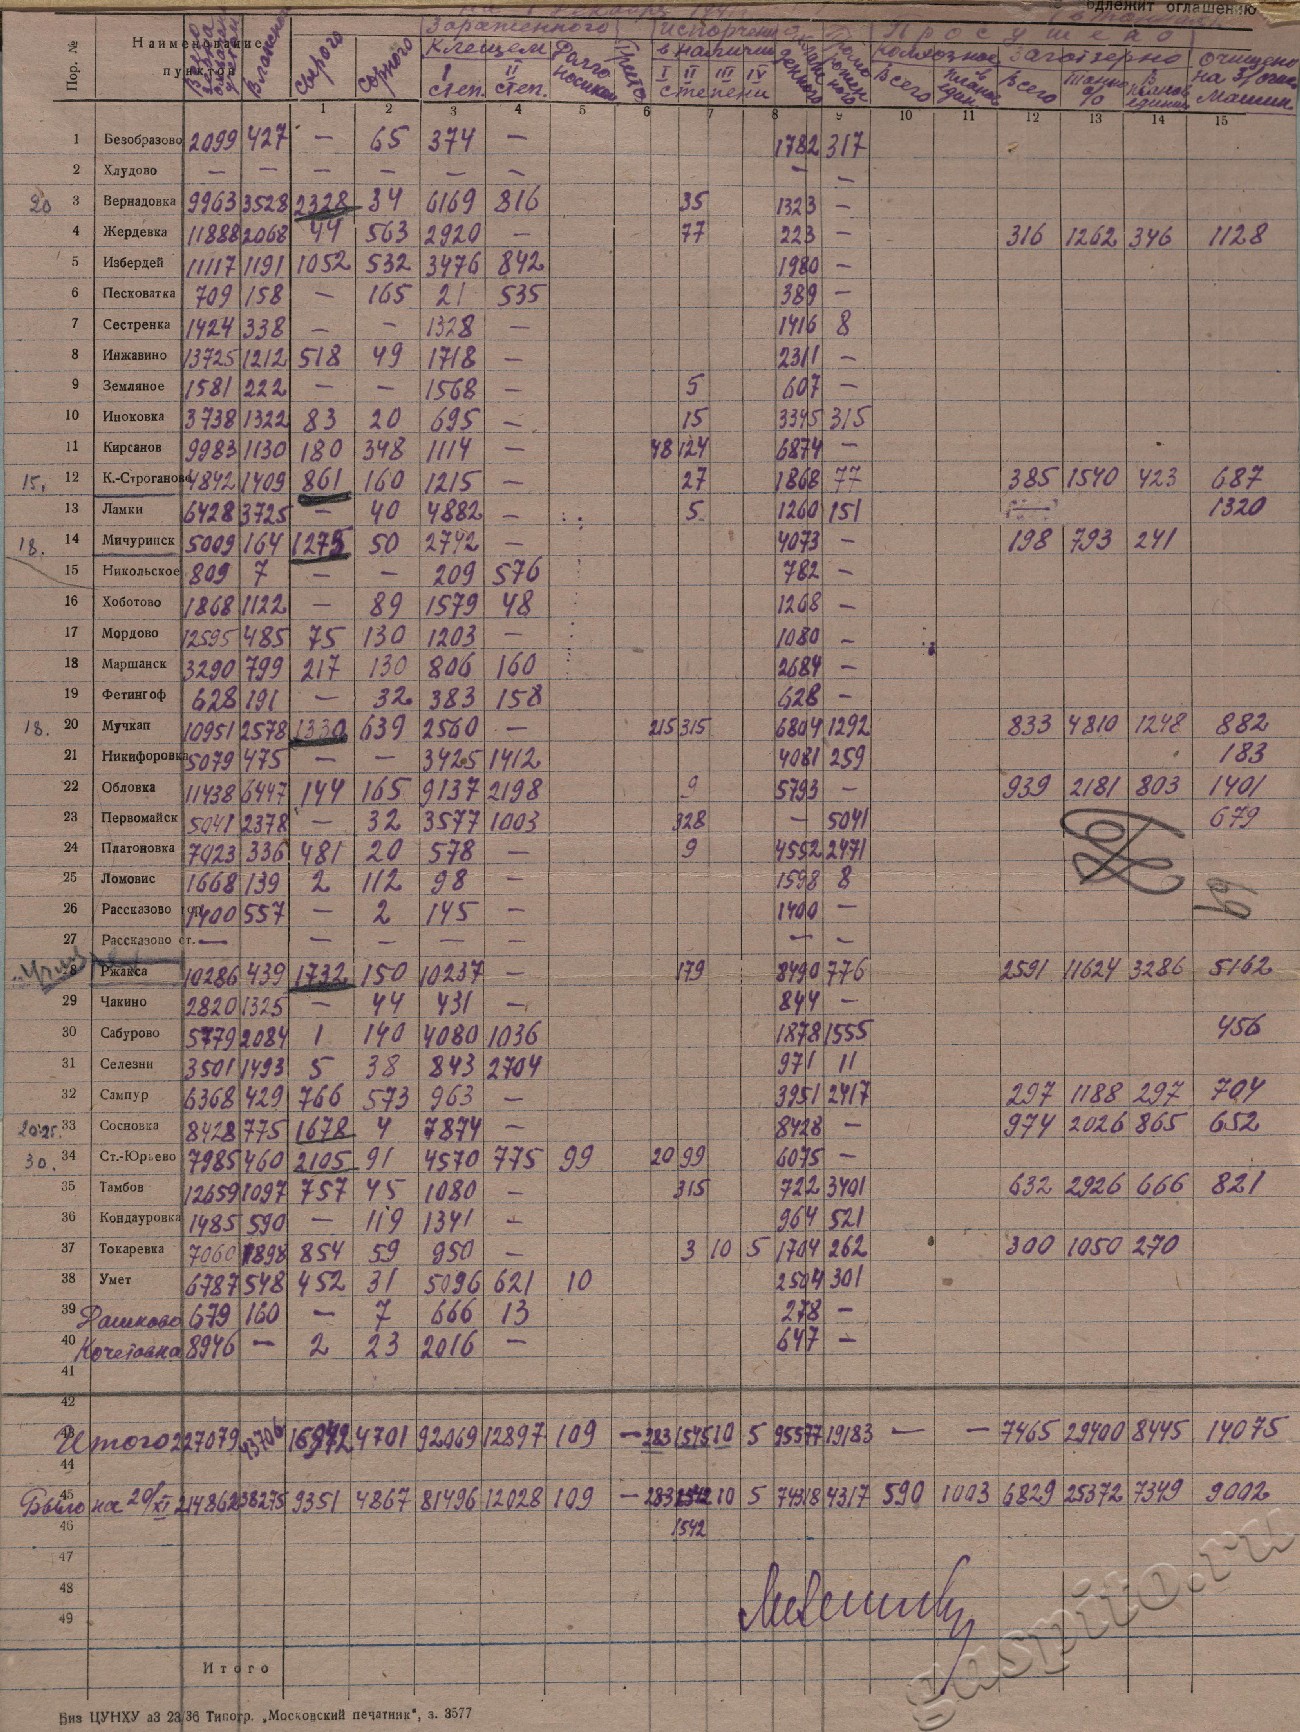 одлежит оглашению
Пор. № Наименование пунктов Влажного Сырого Сорного Зараженного клещем I степ. II степ. Долгоносиком Испорчено в наличии I II III IV степени Просушено Всего Всего Тонно % Очищено на з/очис. машин.
1 2 3 4 5 6 7 8 9 10 11 12 13 14 15
1 Безобразово 2099 427 — 65 374 — 1782 317
2 Хлудово — — — — — — — —
20 3 Вернадовка 9963 3528 2328 34 6169 816 35 1323 —
4 Жердевка 11888 2068 44 563 2920 — 77 223 — 316 1262 346 1128
5 Избердей 11117 1191 1052 532 3476 842 1980 —
6 Песковатка 709 158 — 165 21 535 389 —
7 Сестренка 1424 338 — — 1328 — 1416 8
8 Инжавино 13725 1212 518 49 1718 — 2311 —
9 Земляное 1581 222 — — 1568 — 5 607 —
10 Иноковка 3738 1322 83 20 695 — 15 3345 315
11 Кирсанов 9983 1130 180 348 1114 — 48 124 6874 —
15. 12 К.-Строганово 4842 1409 861 160 1215 — 27 1868 77 385 1540 423 687
13 Ламки 6428 3725 — 40 4882 — 5 1260 151 1320
18. 14 Мичуринск 5009 164 1275 50 2742 — 4073 — 198 793 241
15 Никольское 809 7 — — 209 576 782 —
16 Хоботово 1868 1122 — 89 1579 48 1268 —
17 Мордово 12595 485 75 130 1203 — 1080 —
18 Маршанск 3290 799 217 130 806 160 2684 —
19 Фетингоф 628 191 — 32 383 158 628 —
18. 20 Мучкап 10951 2578 1330 639 2560 — 215 315 6804 1292 833 4810 1248 882
21 Никифоровка 5079 475 — — 3425 1412 4081 259 183
22 Обловка 11438 6447 144 165 9137 2198 9 5793 — 939 2181 803 1401
23 Первомайск 5041 2378 — 32 3577 1003 328 — 5041 679
24 Платоновка 7023 336 481 20 578 — 9 4552 2471
25 Ломовис 1668 139 2 112 98 — 1598 8
26 Рассказово 1400 557 — 2 145 — 1400 —
27 Рассказово ст. — — — — — — —
8 Ржакса 10286 439 1732 150 10237 — 179 8490 776 2591 11624 3286 5162
29 Чакино 2820 1325 — 44 431 — 844 —
30 Сабурово 5779 2084 1 140 4080 1036 1878 1555 456
31 Селезни 3501 1493 5 38 843 2704 971 11
32 Сампур 6368 429 766 573 963 — 3951 2417 297 1188 297 704
20-25. 33 Сосновка 8428 775 1678 4 7874 — 8428 — 974 2026 865 652
30. 34 Ст.-Юрьево 7985 460 2105 91 4570 775 99 20 99 6075 —
35 Тамбов 12659 1097 757 45 1080 — 315 722 3401 632 2926 666 821
36 Кондауровка 1485 590 — 119 1341 — 964 521
37 Токаревка 7060 1898 854 59 950 — 3 10 5 1704 262 300 1050 270
38 Умет 6787 548 452 31 5096 621 10 2504 301
39 Дашково 679 160 — 7 666 13 278 —
40 Кочетовка 8946 — 2 23 2016 — 647 —
41
42
43 Итого 227079 43706 16942 4701 92069 12897 109 — 283 1545 10 5 95577 19183 — — 7465 29400 8445 14075
44
45 Было на 20/XI 214862 38275 9351 4867 81496 12028 109 — 283 1542 10 5 74318 4317 590 1003 6829 25372 7349 9002
46 1542
47
48
49
Итого
Биз ЦУНХУ аЗ 23/36 Типогр. „Московский печатник", з. 3577
gaspito.ru